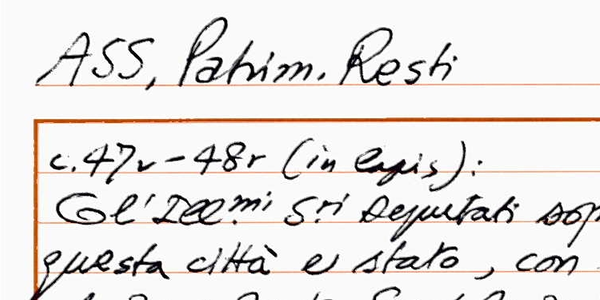 ASS, Patrim. Resti
c. 47v - 48r (in lapis):
Gl'Ill.mi S.ri Deputati sop
questa città e stato, con